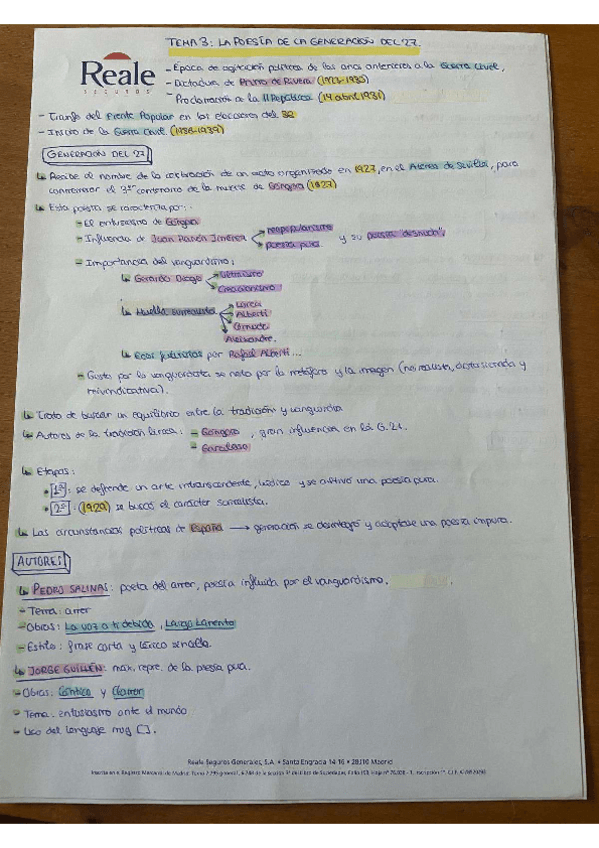 TEMA 3: LA POESÍA DE LA GENERACIÓN DEL 27.
Reale
SEGUROS
- Época de agitación políticas de los años anteriores a la Guerra Civil,
- Dictadura de Primo de Rivera
- Proclamación de la II República (14 abril 1931)
- Triunfo del Frente Popular en las elecciones del
- Inicio de la Guerra Civil (1936-1939)
GENERACIÓN DEL 27
↳ Recibe el nombre de la celebración de un acto organizado en 1927, en el Ateneo de Sevilla, para
conmemorar el 3er centenario de la muerte de Góngora (1627)
↳ Esta poesía se caracteriza por:
- El entusiasmo de Góngora
- Influencia de Juan Ramón Jiménez neopopularismo
poesía pura y su poesía "desnuda".
- Importancia del vanguardismo:
↳ Gerardo Diego Ultraísmo
Creacionismo
↳ Huella surrealista Lorca
Alberti
Cernuda
Aleixandre.
↳ Ecos futuristas por Rafael Alberti...
- Gusto por la vanguardista se nota por la metáfora y la imagen (no realista, distorsionada y
reivindicativa).
↳ Trata de buscar un equilibrio entre la tradición y vanguardia
↳ Autores de la tradición - Góngora, gran influencia en la G.27.
- Garcilaso
↳ Etapas:
• 1ª: se defiende un arte intranscendente, lúdico y se cultivó una poesía pura.
• 2ª: (1929) se busca el carácter surrealista.
↳ Las circunstancias políticas de España → generación se desintegró y adoptase una poesía impura.
AUTORES
↳ PEDRO SALINAS: poeta del amor, poesía influida por el vanguardismo.
- Tema: amor
- Obras: La voz a ti debida, Largo Lamento
- Estilo: frase corta y léxico sencillo.
↳ JORGE GUILLÉN: máx. repre. de la poesía pura.
- Obras: Cántico y Clamor
- Tema: entusiasmo ante el mundo
- Uso del lenguaje muy [ ].
Reale Seguros Generales, S.A. • Santa Engracia 14-16 • 28010 Madrid